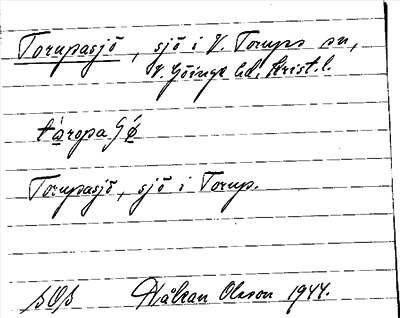 Torupasjö, sjö i V. Torups sn,
V. Göinge hd, Krist. l.
tåropa
Torupasjö, sjö i Torup.
SOS Håkan Olsson 1944.